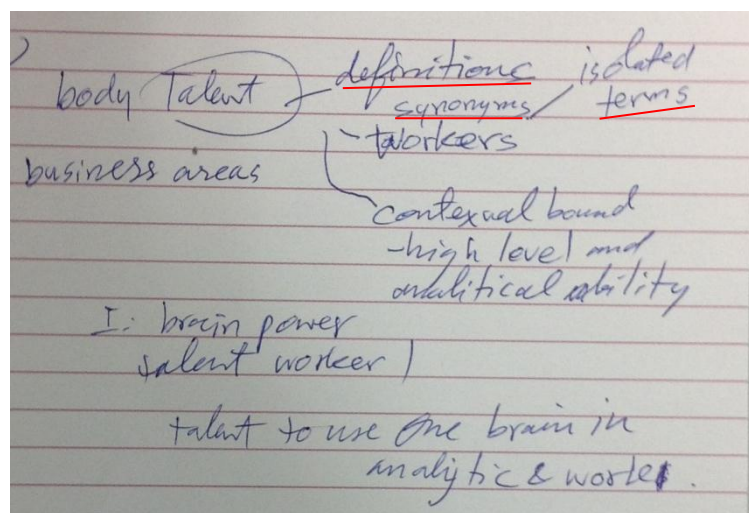 body Talent - definitions isolated
synonyms / terms
- workers
business areas
contexual bound
- high level and
analitical ability
I: brain power
talent worker )
talent to use one brain in
analytic & worker.